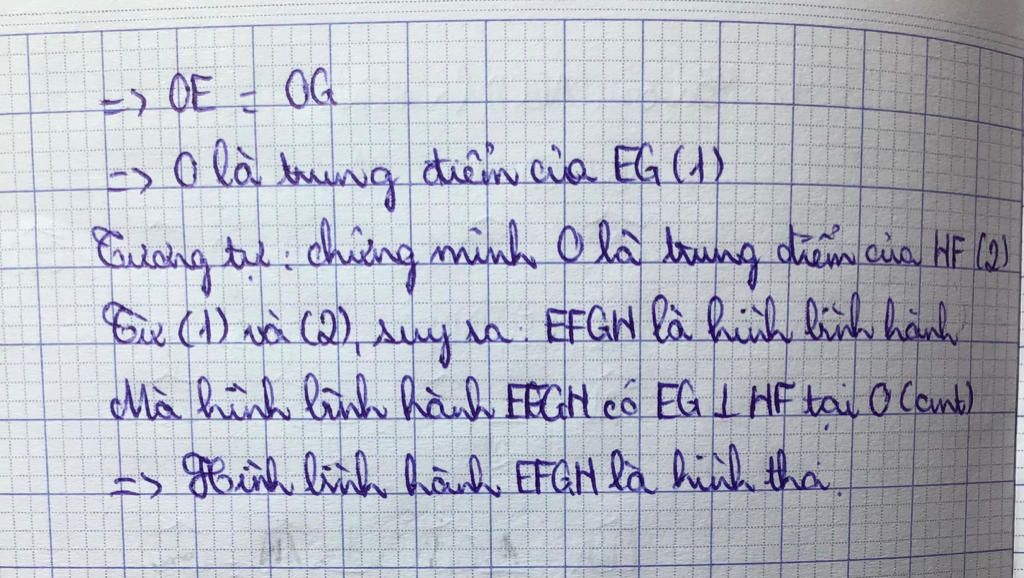 => OE = OG
=> O là trung điểm của EG (1)
Tương tự: chứng minh O là trung điểm của HF (2)
Từ (1) và (2), suy ra: EFGH là hình bình hành
Mà hình bình hành EFGH có EG ⊥ HF tại O (cmt)
=> Hình bình hành EFGH là hình thoi.